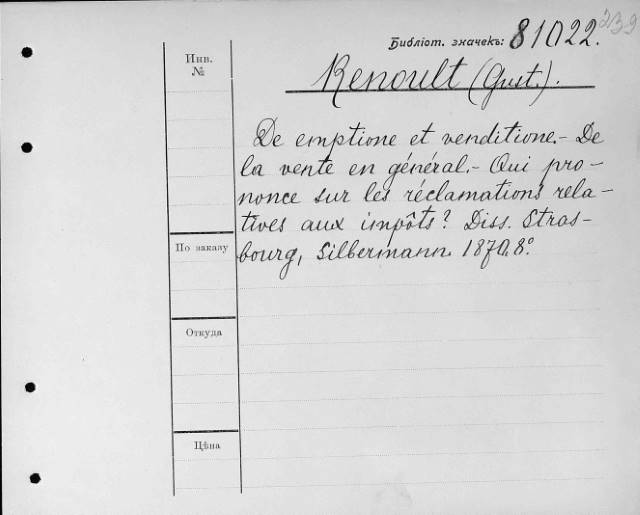 239
Библіот. значекъ: 81022.
Инв.
№
Renoult (Gust.).
De emptione et venditione.- De
la vente en général.- Qui pro-
nonce sur les réclamations rela-
tives aux impôts? Diss. Stras-
По заказу
bourg, Silbermann 1870. 8°.
Откуда
Цѣна